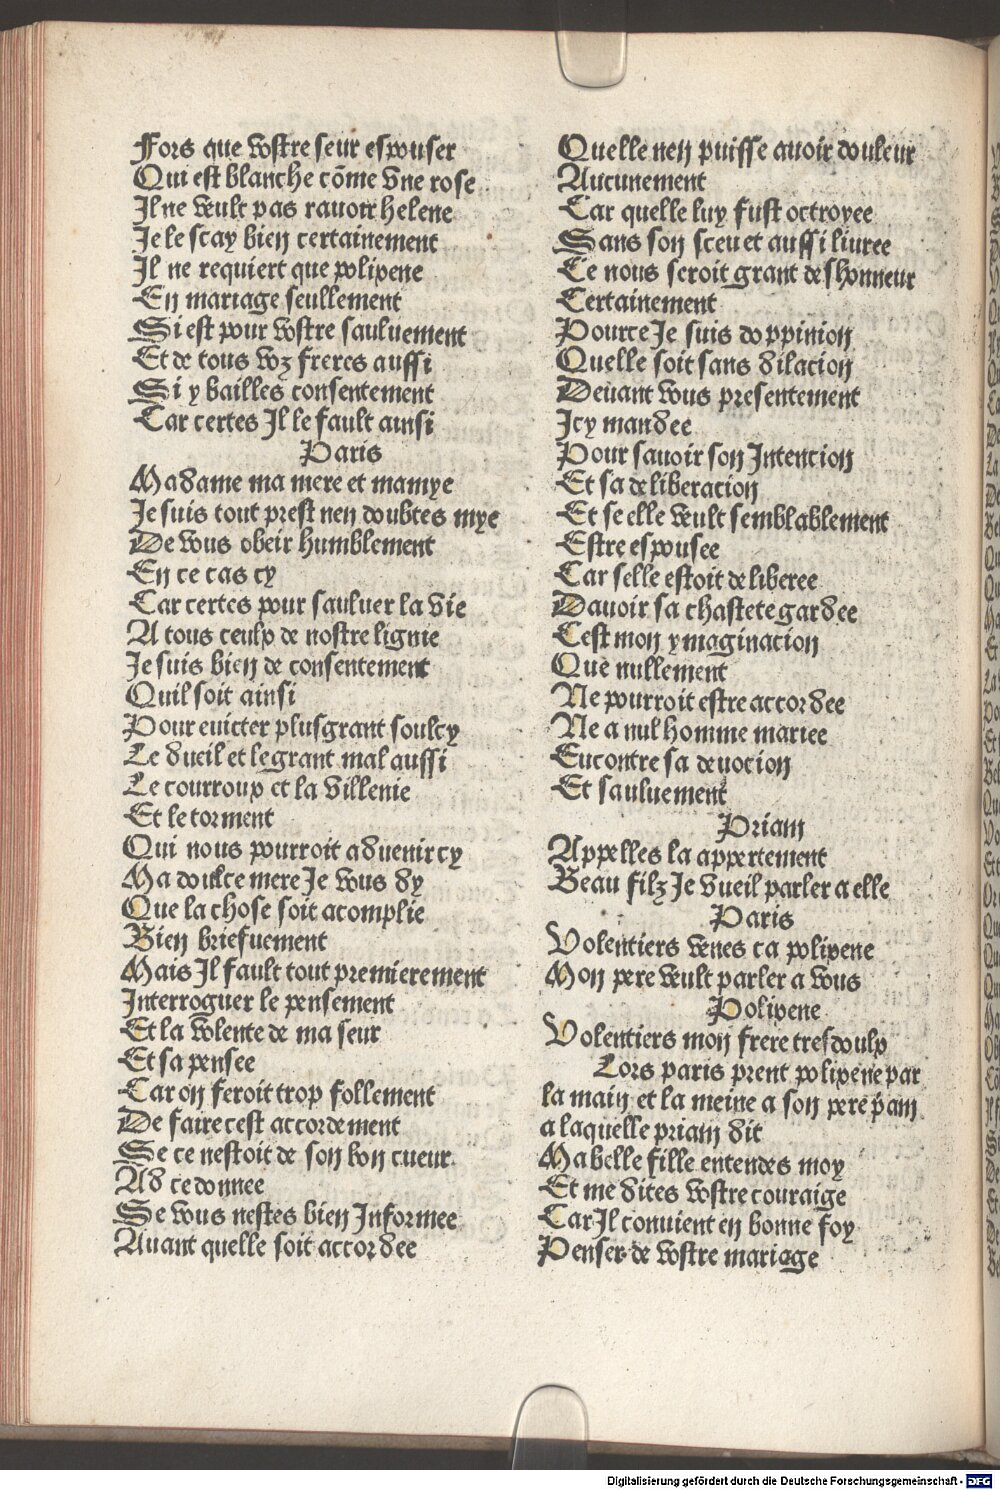 Fors que vostre seur espouser
Qui est blanche cõme vne rose
Il ne veult pas rauoir helene
Je le scay bien certainement
Il ne requiert que polixene
En mariage seullement
Si est pour vostre sauluement
Et de tous voz freres aussi
Si y bailles consentement
Car certes Il le fault ainsi
Paris
Madame ma mere et mamye
Je suis tout prest nen doubtes mye
De vous obeir humblement
En ce cas cy
Car certes pour sauluer la vie
A tous ceulx de nostre lignie
Je suis bien de consentement
Quil soit ainsi
Pour euicter plusgrant soulcy
Le dueil et le grant mal aussi
Le courroux et la villenie
Et le torment
Qui nous pourroit aduenir cy
Ma doulce mere Je vous dy
Que la chose soit acomplie
Bien briefuement
Mais Il fault tout premierement
Interroguer le pensement
Et la volente de ma seur
Et sa pensee
Car on feroit trop follement
De faire cest accordement
Se ce nestoit de son bon cueur
Ad ce donnee
Se vous nestes bien Informee
Auant quelle soit accordee
Quelle nen puisse auoir douleur
Aucunement
Car quelle luy fust octroyee
Sans son sceu et aussi liuree
Ce nous seroit grant deshonneur
Certainement
Pource Je suis doppinion
Quelle soit sans dilacion
Deuant vous presentement
Icy mandee
Pour sauoir son Intencion
Et sa deliberacion
Et se elle veult semblablement
Estre espousee
Car selle estoit deliberee
Dauoir sa chastete gardee
Cest mon ymaginacion
Que nullement
Ne pourroit estre accordee
Ne a nul homme mariee
Encontre sa deuocion
Et sauluement
Priam
Appelles la appertement
Beau filz Je vueil parler a elle
Paris
Volentiers venes ca polixene
Mon pere veult parler a vous
Polixene
Volentiers mon frere tresdoulx
Lors paris prent polixene par
la main et la meine a son pere p̄am
a laquelle priam dit
Ma belle fille entendes moy
Et me dites vostre couraige
Car Il conuient en bonne foy
Penser de vostre mariage
Digitalisierung gefördert durch die Deutsche Forschungsgemeinschaft - DFG